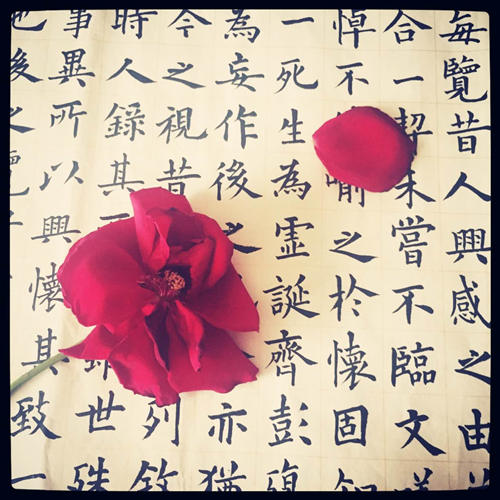 每覽昔人興感之由
合一契未嘗不臨文
悼不喻之於懷固知
一死生為虛誕齊彭殤
為妄作後之亦猶
今之視昔列敘
時人錄其世殊
事異所以興懷其致一
也後之覽